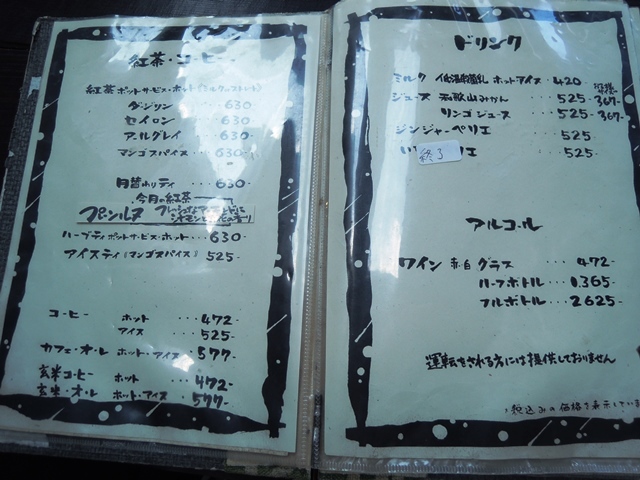 紅茶・コーヒー
紅茶 ポットサービス・ホット(ミルク or ストレート)
ダージリン ・・・・ 630-
セイロン ・・・・ 630-
アールグレイ ・・・ 630-
マンゴスパイス ・・・ 630-
月替わりティ ・・・・ 630-
今月の紅茶
ハーブティ ポットサービス・ホット ・・・ 630-
アイスティ(マンゴスパイス) 525-
コーヒー ホット ・・・ 472-
アイス ・・・ 525-
カフェ・オ・レ ホット・アイス ・・・ 577-
玄米コーヒー ホット ・・・ 472-
玄米・オ・レ ホット・アイス ・・・ 577-
ドリンク
ミルク 低温殺菌乳 ホットアイス ・ 420
ジュース 和歌山みかん ・・・ 525- 367-
リンゴジュース ・・・ 525- 367-
ジンジャーペリエ 525
終了 ・・・ 525-
アルコール
ワイン 赤・白 グラス ・・・ 472-
ハーフボトル ・・・ 1.365-
フルボトル ・・・ 2625-
運転をされる方には提供しておりません
税込みの価格を表示していま